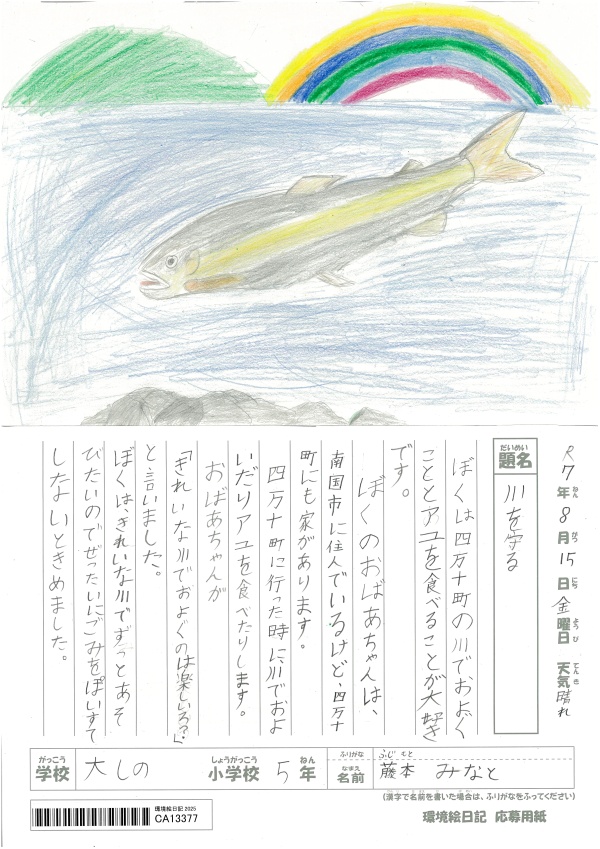 R7年ねん8月がつ15日にち金曜日ようび 天気てんき晴れ
題名だいめい 川を守る
ぼくは四万十町の川でおよぐ
こととアユを食べることが大好き
です。
ぼくのおばあちゃんは、
南国市に住んでいるけど、四万十
町にも家があります。
四万十町に行った時に川でおよ
いだりアユを食べたりします。
おばあちゃんが
「きれいな川でおよぐのは楽しいろ?」
と言いました。
ぼくは、きれいな川でずっとあそ
びたいのでぜったいにごみをぽいすて
したないときめました。
がっこう 学校 大しの しょうがっこう 小学校 5 ねん 年
ふりがな ふじ もと
なまえ 名前 藤本 みなと
(漢字で名前を書いた場合は、ふりがなをふってください)
環境絵日記 応募用紙
環境絵日記 2025
CA13377